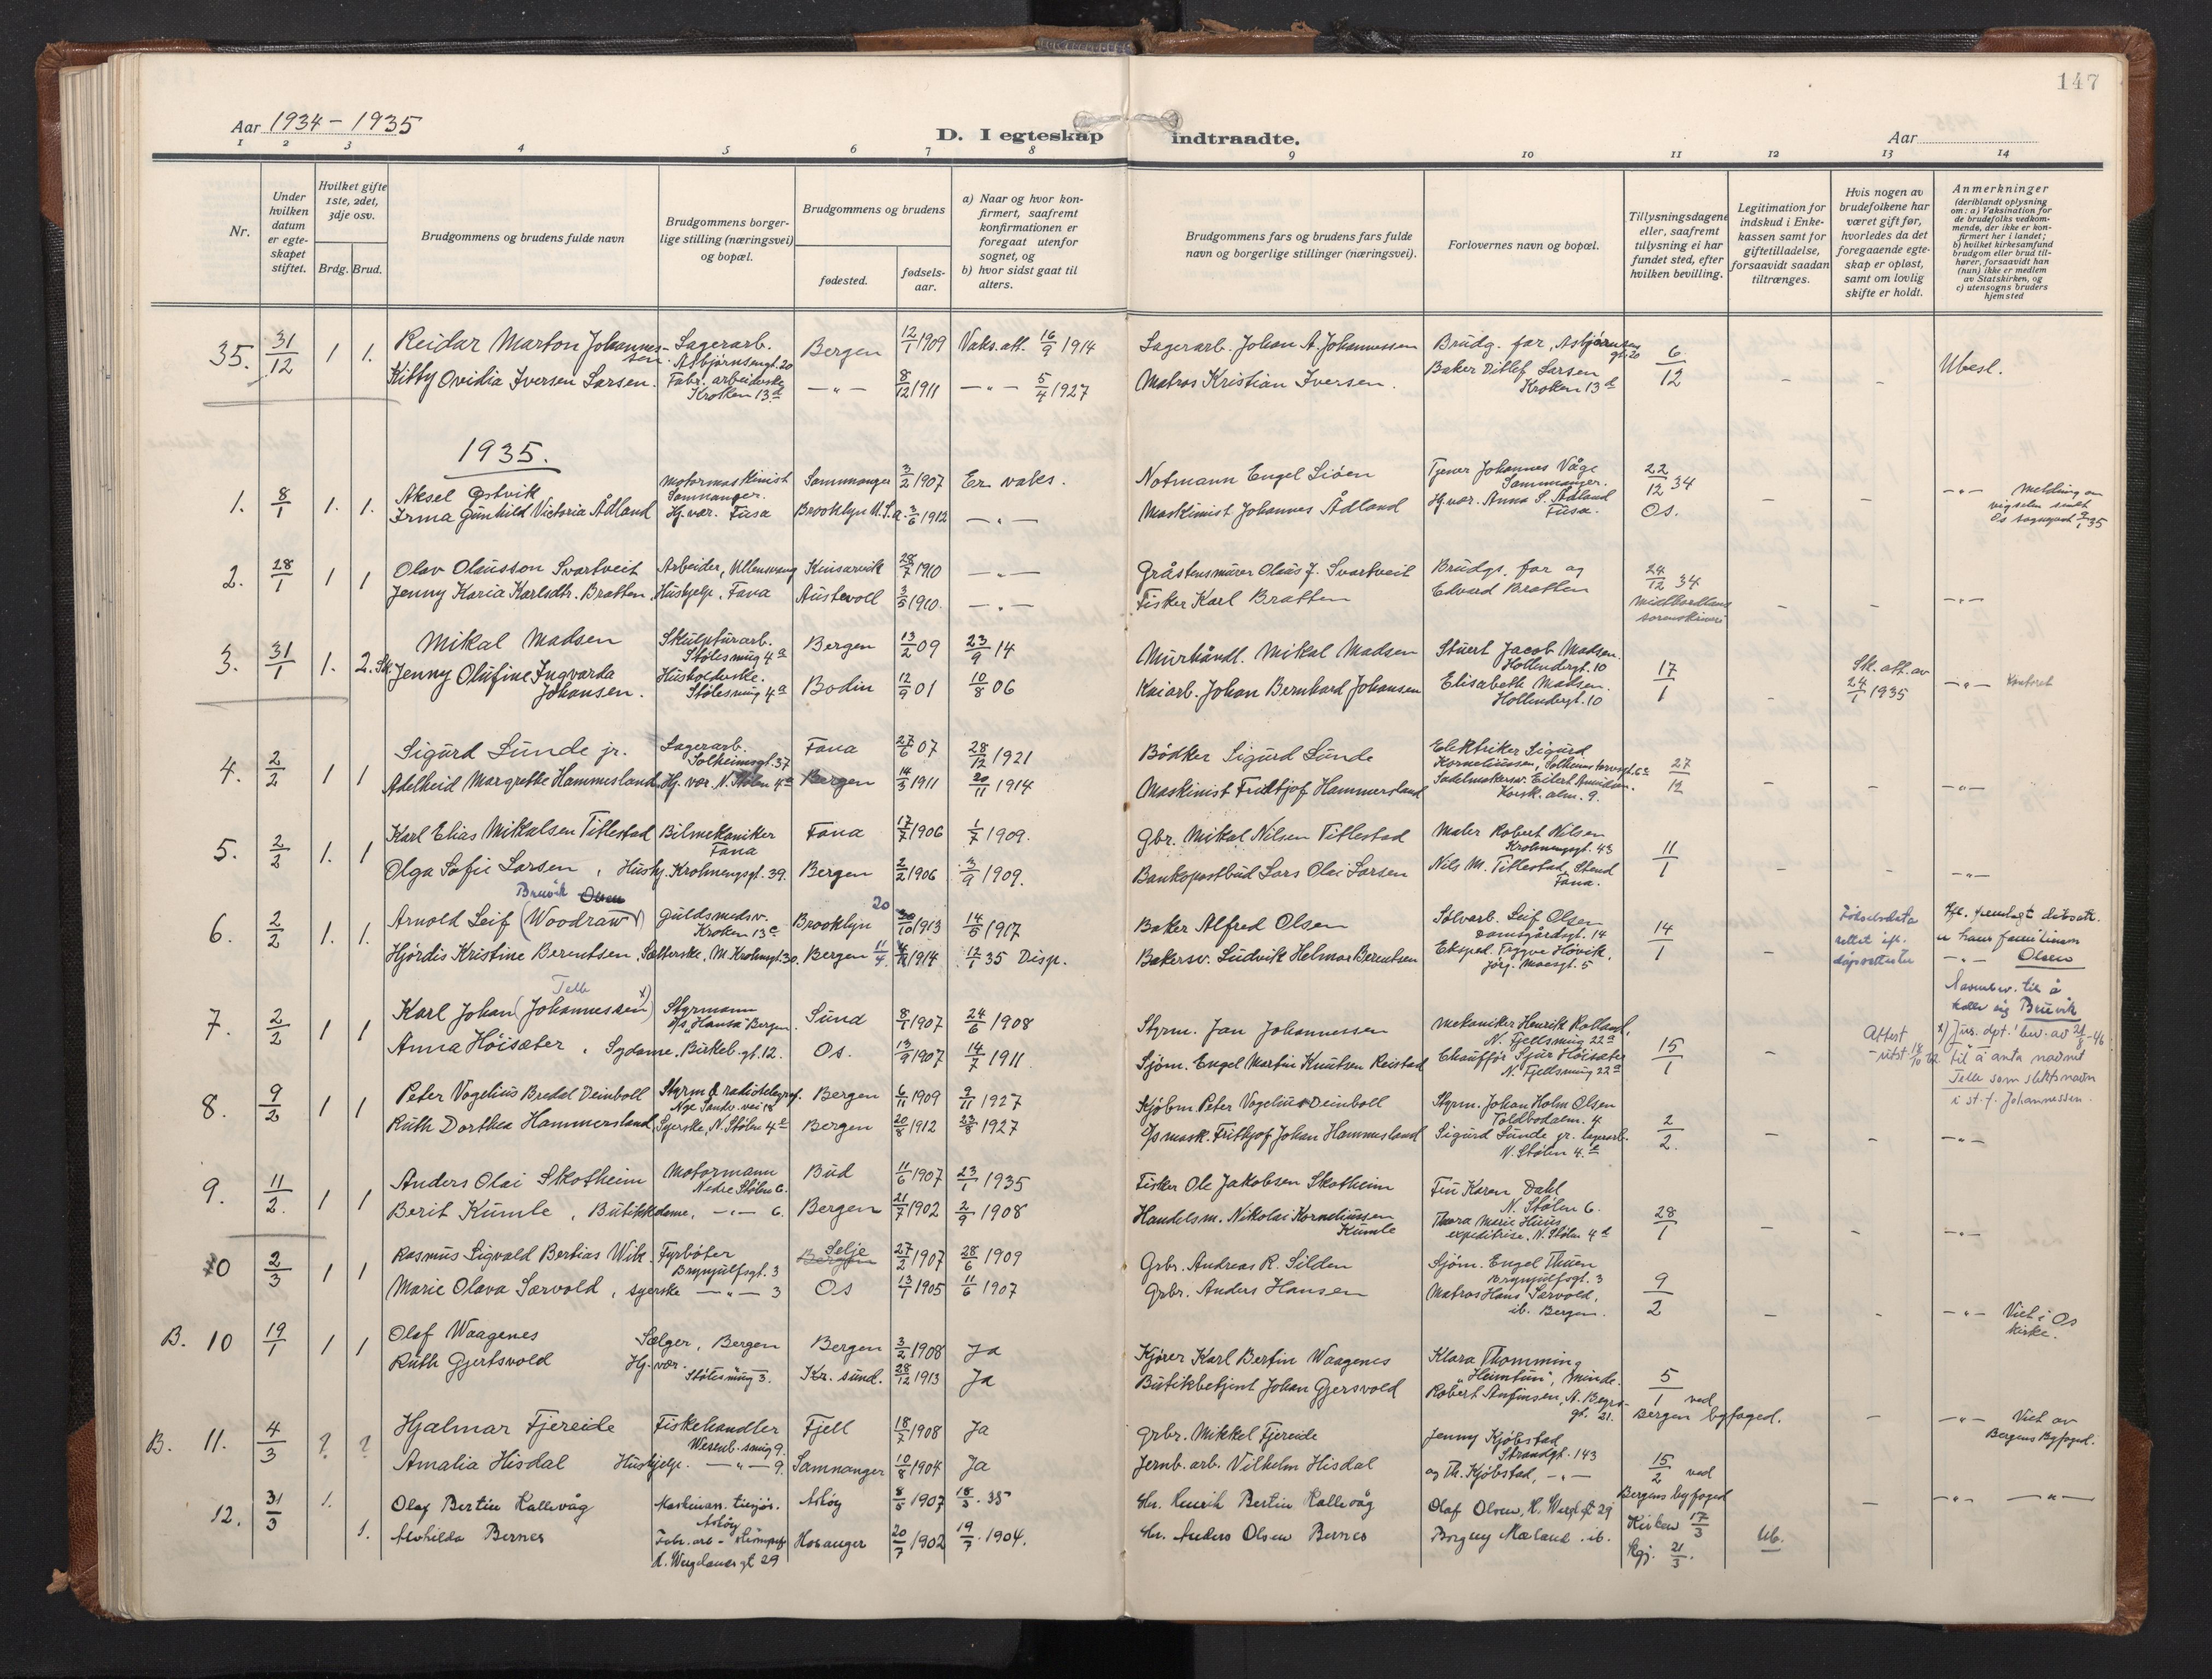 147
Aar 1934 - 1935
D. I egteskap indtraadte.
Aar
1 2 3 4 5 6 7 8 9 10 11 12 13 14
Nr.
Under hvilken datum er egteskapet stiftet.
Hvilket gifte 1ste, 2det, 3dje osv.
Brdg. Brud.
Brudgommens og brudens fulde navn
Brudgommens borgerlige stilling (næringsvei) og bopæl.
Brudgommens og brudens
fødested.
fødsels-aar.
a) Naar og hvor konfirmert, saafremt konfirmationen er foregaat utenfor sognet, og
b) hvor sidst gaat til alters.
Brudgommens fars og brudens fars fulde navn og borgerlige stillinger (næringsvei).
Forlovernes navn og bopæl.
Tillysningsdagene eller, saafremt tillysning ei har fundet sted, efter hvilken bevilling.
Legitimation for indskud i Enkekassen samt for giftetilladelse, forsaavidt saadan tiltrænges.
Hvis nogen av brudefolkene har været gift før, hvorledes da det foregaaende egteskap er opløst, samt om lovlig skifte er holdt.
Anmerkninger (deriblandt oplysning om: a) Vaksination for de brudefolks vedkommende, der ikke er konfirmert her i landet; b) hvilket kirkesamfund brudgom eller brud tilhører, forsaavidt han (hun) ikke er medlem av Statskirken, og c) utensogns bruders hjemsted
35. 31/12 1 1. Reidar Marton Johannessen. Lagerarb. Asbjørnsengt. 20 Bergen 12/1 1909 Vaks.att. 16/9 1914 Lagerarb. Johan A. Johannessen Brudg. far, Asbjørnsengt. 20 6/12 - - Ubesl.
Kitty Ovidia Iversen Larsen. Fabr. arbeiderske Kroken 13d —"— 8/12 1911 —"— 5/4 1927 Matros Kristian Iversen. Baker Ditlef Larsen Kroken 13d
1935.
1. 8/1 1. 1. Aksel Østvik Motormaskinist Sammanger. Sammanger 3/2 1907 Er vaks. Notmann Engel Liøen Tjener Johannes Våge Sammanger. 22/12 34 Os. - - —"— Melding om vigselen sendt Os sogneprest 9/1 35
Irma Gunhild Victoria Ådland Hj. vær. Fusa Brooklyn U.S.A. 3/6 1912 —"— Maskinist Johannes Ådland Hj. vær. Anna S. Ådland Fusa.
2. 28/1 1 1 Olav Olausson Svartveit Arbeider, Ullensvang Kinsarvik 28/7 1910 —"— Gråstensmurer Olaus J. Svartveit Brudgs. far og 24/12 34 Midthordland sorenskriveri - - —"—
Jenny Karia Karlsdtr. Bratten, Hushjelp. Fana Austevoll 3/5 1910. —"— Fisker Karl Bratten Edvard Bratten
3. 31/1 1. 2. Sk. Mikal Madsen Skulpturarb. Stølesmug 4a Bergen 13/2 09 23/9 14 Murhåndl. Mikal Madsen Stuert Jacob Madsen. Hollendergt. 10 17/1 - Sk. att. av 24/1 1935 —"— Kontoret
Jenny Olufine Ingvarda Johansen. Husholderske. Stølesmug 4a Bodin 12/9 01 10/8 06 Kaiarb. Johan Bernhard Johansen Elisabeth Madsen. Hollendergt. 10
4. 2/2 1 1 Sigurd Lunde jr. Lagerarb. Solheimsgt. 37 Fana 27/6 07 28/12 1921 Bødker Sigurd Lunde Elektriker Sigurd Korneliussen, Solheimstorvgt. 6a 27/12 - - —"—
Adelheid Margrethe Hammersland Hj. vær. N. Stølen 4a Bergen 14/3 1911 20/11 1914 Maskinist Fridtjof Hammersland Sadelmakersv. Eilert Amundsen. Korsk. alm. 9.
5. 2/2 1. 1 Karl Elias Mikalsen Titlestad Bilmekaniker Fana Fana 17/7 1906 1/7 1909. Gbr. Mikal Nilsen Titlestad Maler Robert Nilsen Krohnengsgt. 43 11/1 - - —"—
Olga Sofie Larsen, Hushj. Krohnengsgt. 39. Bergen 2/2 1906 3/9 1909. Bankopostbud Lars Olai Larsen Nils M. Titlestad, Stend Fana.
6. 2/2 1. 1. Arnold Leif (Woodraw) Bruvik Olsen Guldsmedsv. Kroken 13c Brooklyn 20 30/10 1913 14/5 1917 Baker Alfred Olsen Sølvarb. Leif Olsen Damsgårdsgt. 14 14/1 - Fødselsdata rettet efter dåpsattester Ifl. fremlagt dåbsatt. er hans familienavn —"— Olsen
Hjørdis Kristine Berentsen, Sætterske, M. Krohnsgt. 30. Bergen 11/4 1914 12/1 35 Disp. Bakersv. Ludvik Helmar Berentsen Eksped. Trygve Høvik, Jørg. Moesgt. 5 Navnebev. til å kalle sig Bruvik
7. 2/2 1 1 Karl Johan (Johannessen x) Telle Styrmann D/s "Hansa" Bergen. Sund 8/1 1907 24/6 1908 Styrm. Jan Johannessen Mekaniker Henrik Rolland. N. Fjellsmug 22a 15/1 - Attest utst. 18/10 62 x) Jus. dpt.' bev. av 24/8-46 til å anta navnet Telle som slektsnavn i st. f. Johannessen.
Anna Høisæter, Sydame, Birkeb. gt. 12. Os. 13/9 1907 14/7 1911 Sjøm. Engel Martin Knutsen Reistad Chauffør Sjur Høisæter N. Fjellsmug 22a
8. 9/2 1 1 Peter Vogelius Bredal Deinboll Styrm & radiotelegraf. Nye Sandv. vei 18 Bergen 6/11 1909 9/11 1927 Kjøbm. Peter Vogelius Deinboll Styrm. Johan Holm Olsen Toldbodalm. 4 2/2. - - —"—
Ruth Dorthea Hammersland Syerske, N. Stølen 4a Bergen 20/8 1912 23/8 1927 D/s mask. Frithjof Johan Hammersland Sigurd Lunde jr. lagerarb. N. Stølen 4a
9. 11/2. 1 1 Anders Olai Skotheim Motormann Nedre Stølen 6. Bud 11/6 1907 23/1 1935 Fisker Ole Jakobsen Skotheim Fru Karen Dahl N. Stølen 6. 28/1 - —"—
Berit Kumle, Butikkdame, —"— 6. Bergen 21/7 1902 2/9 1908 Handelsm. Nikolai Korneliussen Kumle Thora Marie Huus expeditrise, N. Stølen 4a
10 2/3 1 1 Rasmus Sigvald Bertias Wik. Fyrbøter Brynjulfsgt. 3 Selje Bergen 27/2 1907 28/6 1909 Grbr. Andreas R. Silden Sjøm. Engel Thuen Brynjulfsgt. 3 9/2 - - —"— Viet i Os kirke.
Marie Olava Særvold, syerske —"— 3 Os 13/1 1905 11/6 1907 Grbr. Anders Hansen Matros Hans Særvold, ib. Bergen.
B. 10 19/1 1 1 Olaf Waagenes Sælger, Bergen Bergen 3/2 1908 Ja Kjører Karl Bertin Waagenes Klara Thomming "Heimtun", Minde. 5/1 ved Bergen byfoged. - —"— Viet av Bergens Byfoged.
Ruth Gjertsvold Hj. vær. Stølesmug 3. Kr. sund. 28/12 1913 Ja Butikbetjent Johan Gjersvold Robert Anfinsen, A. Bergs-gt. 21.
B. 11. 4/3 ? ? Hjalmar Fjereide Fiskehandler Wesenb. smug 9. Fjell 18/7 1908 Ja Grbr. Mikkel Fjereide Jenny Kjøbstad Strandgt. 143 15/2 ved Bergens byfoged - —"— —"—
Amalia Hisdal Hushjelp. —"— 9. Samnanger 10/8 1904 Ja Jernb. arb. Vilhelm Hisdal og Th. Kjøbstad, —"—
12. 31/3 1. Olaf Bertin Kallevåg Maskinass. Askøy Askøy 8/5 1907 18/3. 35 Gbr. Henrik Bertin Kallevåg Olaf Olsen, H. Wergl. gt 29 Kirken 17/3
1. Alvhilda Bernes Fabr. arb. H. Wergelands gt 29 Hosanger 20/7 1902 19/7. 1904. Gbr. Anders Olsen Bernes Borgny Mæland. ib. Kgj. 21/3. Ub.